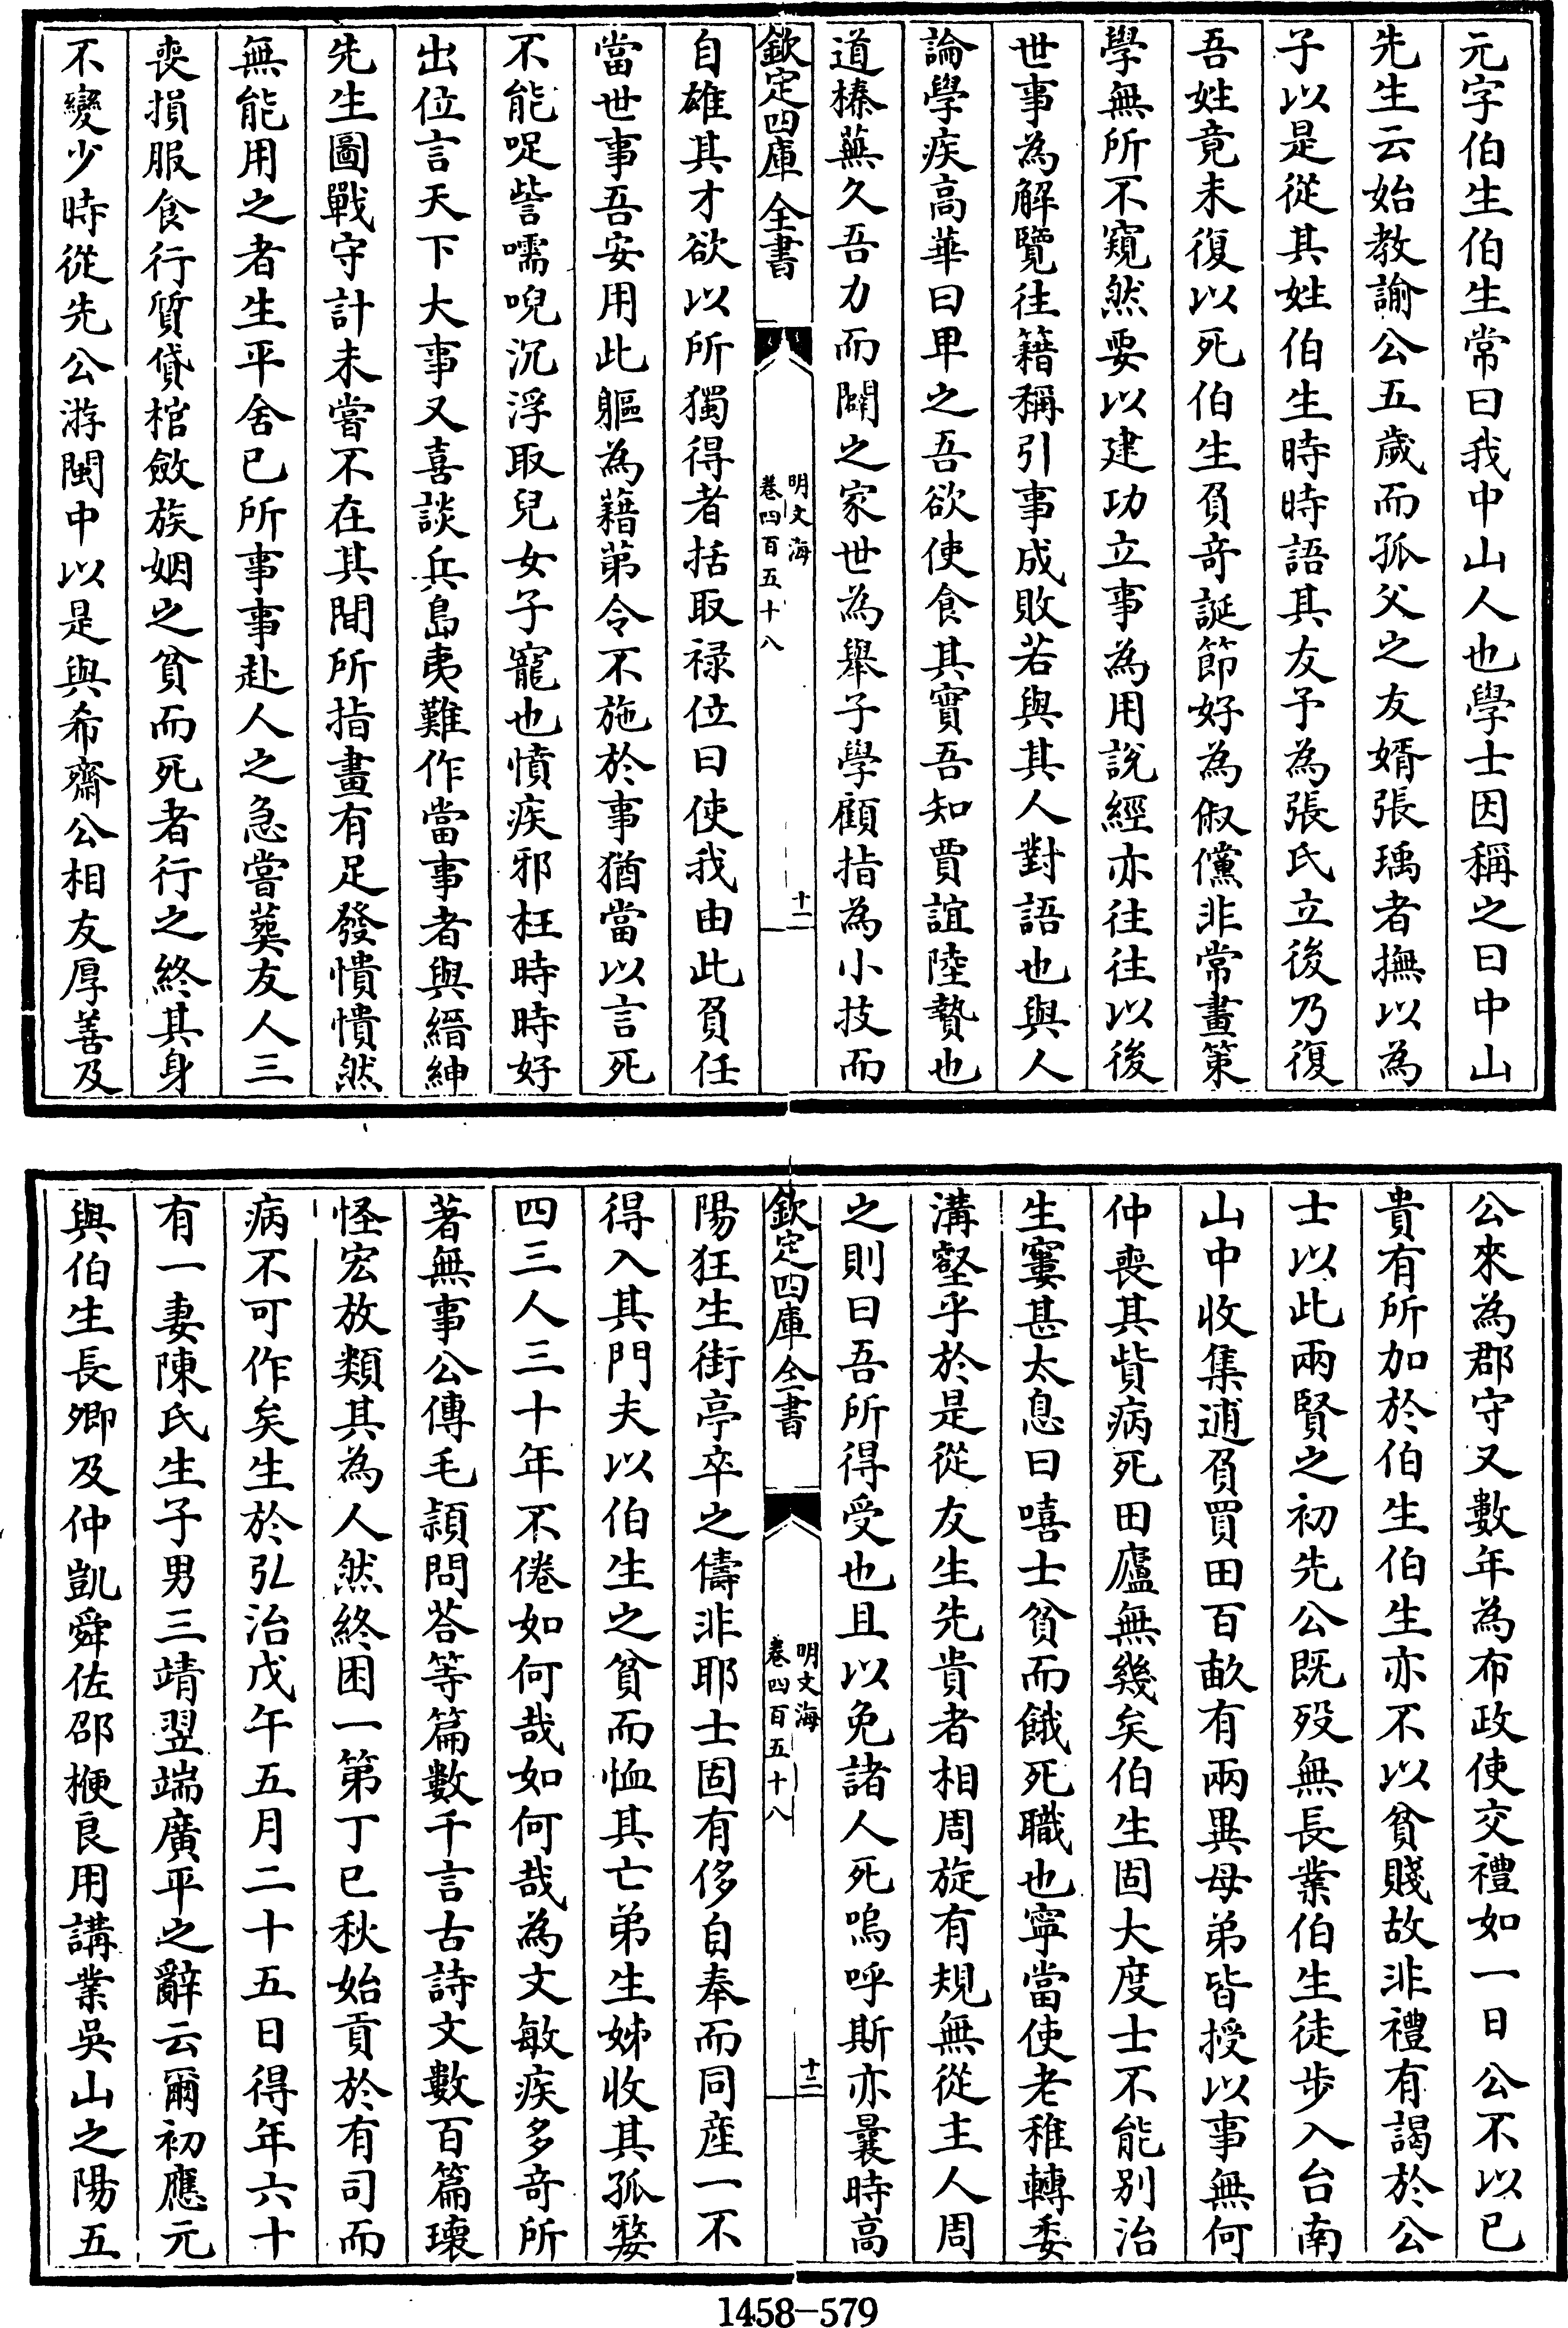 元字伯生伯生常曰我中山人也學士因稱之曰中山
先生云始教諭公五歲而孤父之友婿張瑀者撫以為
子以是從其姓伯生時時語其友予為張氏立後乃復
吾姓竟未復以死伯生負竒誕節好為俶儻非常畫策
學無所不窺然要以建功立事為用說經亦往往以後
世事為解覽往籍稱引事成敗若與其人對語也與人
論學疾高華曰卑之吾欲使食其實吾知賈誼陸贄也
道榛蕪久吾力而闢之家世為舉子學顧指為小技而
欽定四庫全書
明文海
卷四百五十八
十二
自雄其才欲以所獨得者括取禄位曰使我由此負任
當世事吾安用此軀為藉第令不施於事猶當以言死
不能哫訾嚅唲沉浮取兒女子寵也憤疾邪枉時時好
出位言天下大事又喜談兵島夷難作當事者與縉紳
先生圖戰守計未嘗不在其間所指畫有足發憒憒然
無能用之者生平舍已所事事赴人之急嘗葬友人三
喪損服食行質貸棺斂族姻之貧而死者行之終其身
不變少時從先公游閩中以是與希齋公相友厚善及
公來為郡守又數年為布政使交禮如一日公不以已
貴有所加於伯生伯生亦不以貧賤故非禮有謁於公
士以此兩賢之初先公既歿無長業伯生徒步入台南
山中收集逋負買田百畝有兩異母弟皆授以事無何
仲喪其貲病死田廬無幾矣伯生固大度士不能别治
生窶甚太息曰嘻士貧而餓死職也寜當使老稚轉委
溝壑乎於是從友生先貴者相周旋有規無從主人周
之則曰吾所得受也且以免諸人死嗚呼斯亦曩時高
欽定四庫全書
明文海
卷四百五十八
十二
陽狂生街亭卒之儔非耶士固有侈自奉而同產一不
得入其門夫以伯生之貧而恤其亡弟生姊收其孤嫠
四三人三十年不倦如何哉如何哉為文敏疾多竒所
著無事公傳毛頴問荅等篇數千言古詩文數百篇瓌
怪宏放類其為人然終困一第丁巳秋始貢於有司而
病不可作矣生於弘治戊午五月二十五日得年六十
有一妻陳氏生子男三靖翌端廣平之辭云爾初應元
與伯生長卿及仲凱舜佐邵楩良用講業吳山之陽五
1458-579